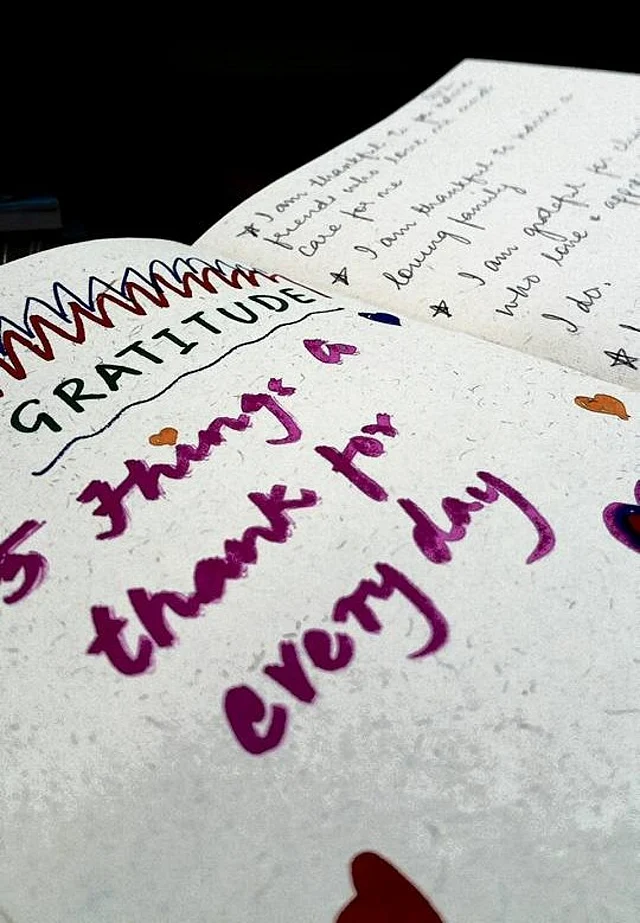 GRATITUDE
5 Things a
thank for
every day
I am thankful to
friends who love me
care for me
I am thankful to have a
loving family
I am grateful for
who love &
I do.
I